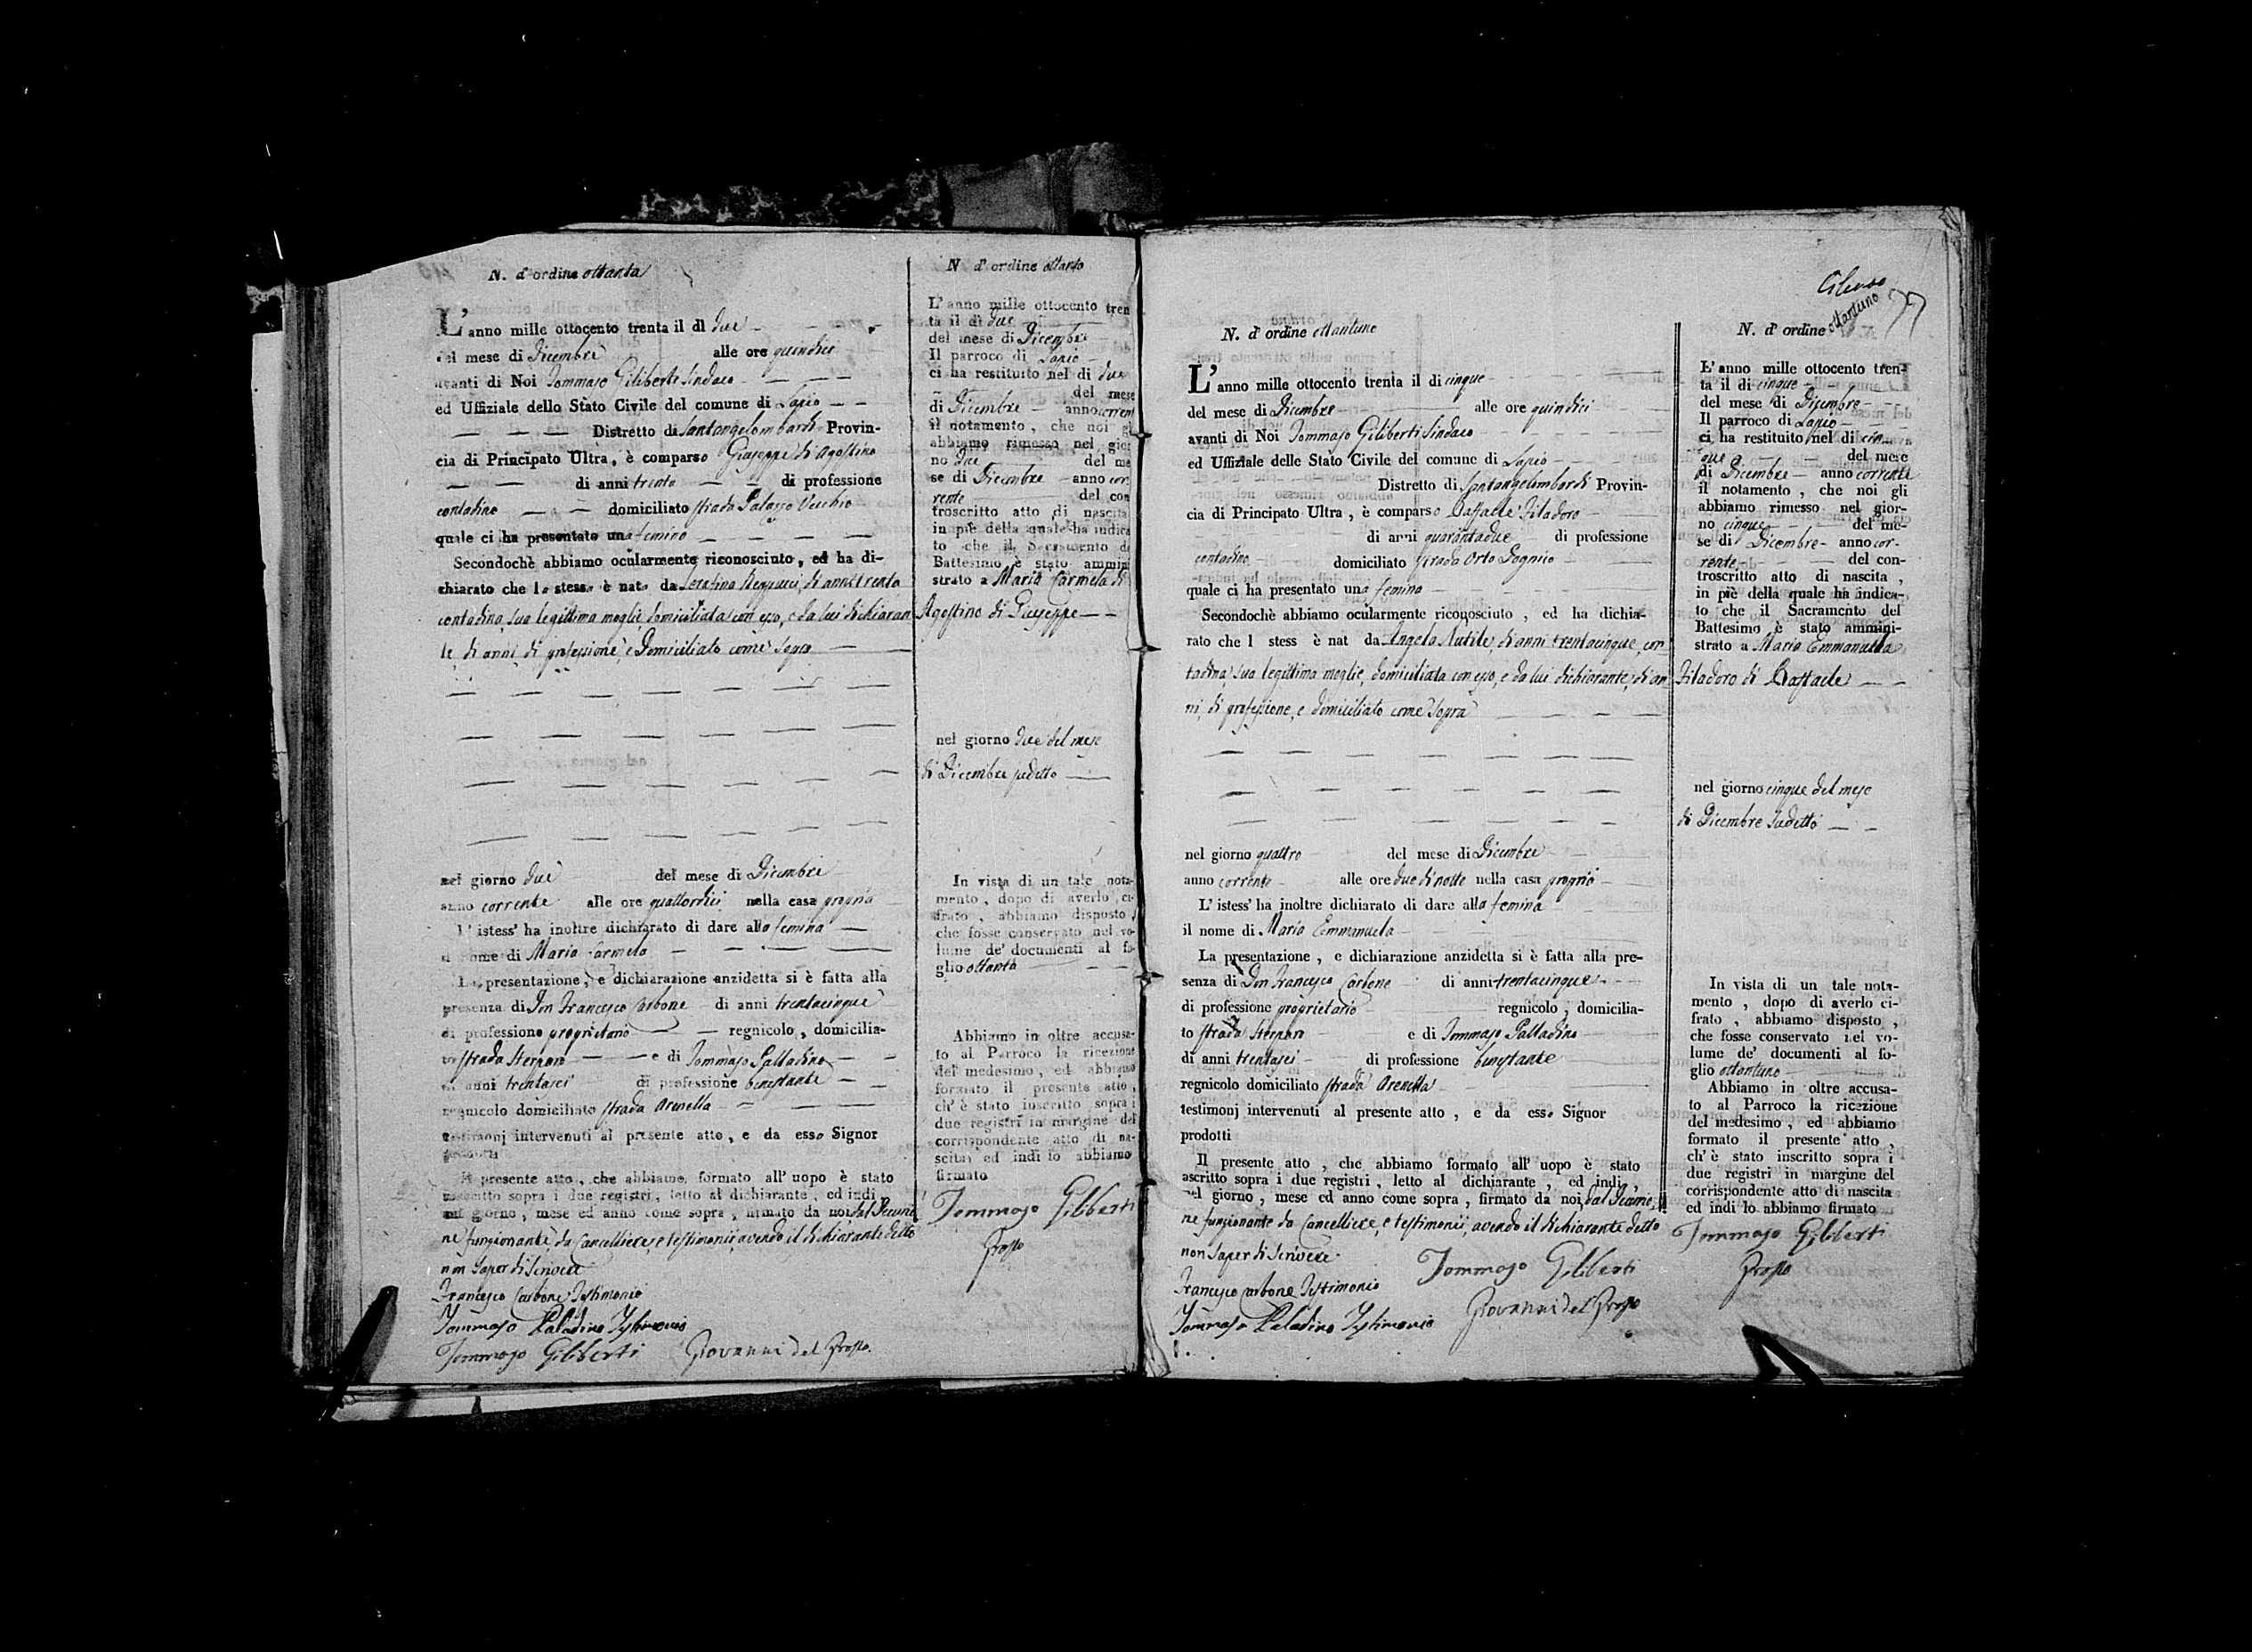 N. d' ordine ottanta
L' anno mille ottocento trenta il dì due
del mese di Dicembre alle ore quindici
avanti di Noi Tommaso Giliberti Sindaco
ed Uffiziale dello Stato Civile del comune di Lapio
Distretto di Santangelombardi Provin-
cia di Principato Ultra, è comparso Giuseppe di Agostino
di anni trenta di professione
contadino domiciliato strada Palazzo Vecchio
quale ci ha presentato una femina
Secondochè abbiamo ocularmente riconosciuto, ed ha di-
chiarato che la stessa è nata da Serafina di anni trenta
contadina, sua legittima moglie, domiciliata con esso, e da lui dichiaran
te, di anni, di professione, e Domiciliato come sopra
nel giorno due del mese di Dicembre
anno corrente alle ore quattordici nella casa propria
L' istess' ha inoltre dichiarato di dare alla femina
il nome di Maria Carmela
La presentazione, e dichiarazione anzidetta si è fatta alla
presenza di Don Francesco Carbone di anni trentacinque
di professione proprietario regnicolo, domicilia-
to strada Sterpara e di Tommaso Palladino
di anni trentasei di professione benestante
regnicolo domiciliato strada Arenella
testimonj intervenuti al presente atto, e da esso Signor
prodotti
Il presente atto, che abbiamo formato all' uopo è stato
inscritto sopra i due registri, letto al dichiarante, ed indi
nel giorno, mese ed anno come sopra, firmato da noi, dal Decurio
ne funzionante da Cancelliere, e testimonii, avendo il dichiarante detto
non saper di scrivere
Francesco Carbone Testimonio
Tommaso Paladino Testimonio
Tommaso Giliberti Giovanni del Grosso
N d' ordine ottanta
L' anno mille ottocento tren
ta il dì due
del mese di Dicembre
Il parroco di Lapio
ci ha restituito nel dì due
del mese
di Dicembre anno corrent
il notamento, che noi gl
abbiamo rimesso nel gior
no due del me
se di Dicembre anno cor
rente del con
troscritto atto di nascita
in piè della quale ha indica
to che il Sacramento di
Battesimo è stato ammini
strato a Maria Carmela di
Agostino di Giuseppe
nel giorno due del mese
di Dicembre sudetto
In vista di un tale nota-
mento, dopo di averlo ci-
frato, abbiamo disposto,
che fosse conservato nel vo-
lume de' documenti al fo-
glio ottanta
Abbiamo in oltre accusa-
to al Parroco la ricezione
del medesimo, ed abbiamo
formato il presente atto,
ch' è stato inscritto sopra i
due registri in margine del
corrispondente atto di na-
scita ed indi lo abbiamo
firmato
Tommaso Giliberti
Grosso
77
N. d' ordine ottantuno
L' anno mille ottocento trenta il di cinque
del mese di Dicembre alle ore quindici
avanti di Noi Tommaso Giliberti Sindaco
ed Uffiziale delle Stato Civile del comune di Lapio
Distretto di Santangelombardi Provin-
cia di Principato Ultra, è comparso Raffaele Filadoro
di anni quarantadue di professione
contadino domiciliato strada Orto
quale ci ha presentato una femina
Secondochè abbiamo ocularmente riconosciuto, ed ha dichia-
rato che l stess è nat da Angela Nutile, di anni trentacinque, con
tadina, sua legittima moglie, domiciliata con esso, e da lui dichiarante, di an
ni, di professione, e domiciliato come sopra
nel giorno quattro del mese di Dicembre
anno corrente alle ore due di notte nella casa propria
L' istess' ha inoltre dichiarato di dare alla femina
il nome di Maria Emmanuela
La presentazione, e dichiarazione anzidetta si è fatta alla pre-
senza di Don Francesco Carbone di anni trentacinque
di professione proprietario regnicolo, domicilia-
to strada Sterpara e di Tommaso Palladino
di anni trentasei di professione benestante
regnicolo domiciliato strada Arenella
testimonj intervenuti al presente atto, e da esso Signor
prodotti
Il presente atto, che abbiamo formato all' uopo è stato
ascritto sopra i due registri, letto al dichiarante, ed indi
nel giorno, mese ed anno come sopra, firmato da noi, dal Decurio
ne funzionante da Cancelliere, e testimonii, avendo il dichiarante detto
non saper di scrivere
Francesco Carbone Testimonio Tommaso Giliberti
Tommaso Paladino Testimonio Giovanni del Grosso
N. d' ordine ottantuno
L' anno mille ottocento tren-
ta il dì cinque
del mese di Dicembre
Il parroco di Lapio
ci ha restituito nel dì cin
que del mese
di Dicembre anno corrente
il notamento, che noi gli
abbiamo rimesso nel gior-
no cinque del me-
se di Dicembre anno cor-
rente del con-
troscritto atto di nascita,
in piè della quale ha indica-
to che il Sacramento del
Battesimo è stato ammini-
strato a Maria Emmanuela
Filadoro di Raffaele
nel giorno cinque del mese
di Dicembre sudetto
In vista di un tale nota-
mento, dopo di averlo ci-
frato, abbiamo disposto,
che fosse conservato nel vo-
lume de' documenti al fo-
glio ottantuno
Abbiamo in oltre accusa-
to al Parroco la ricezione
del medesimo, ed abbiamo
formato il presente atto,
ch' è stato inscritto sopra i
due registri in margine del
corrispondente atto di nascita
ed indi lo abbiamo firmato
Tommaso Giliberti
Grosso